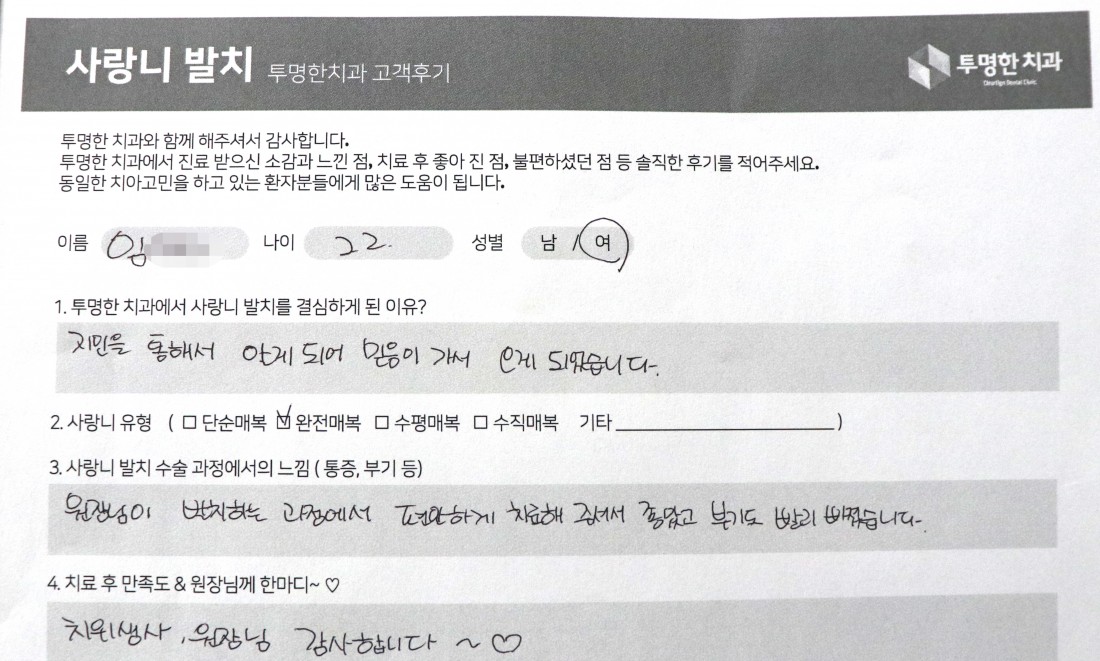 사랑니 발치 투명한치과 고객후기
투명한 치과
투명한 치과와 함께 해주셔서 감사합니다.
투명한 치과에서 진료 받으신 소감과 느낀 점, 치료 후 좋아 진 점, 불편하셨던 점 등 솔직한 후기를 적어주세요.
동일한 치아고민을 하고 있는 환자분들에게 많은 도움이 됩니다.
이름 임 나이 22. 성별 남 / 여
1. 투명한 치과에서 사랑니 발치를 결심하게 된 이유?
지인을 통해서 알게 되어 믿음이 가서 오게 되었습니다.
2. 사랑니 유형 ( □ 단순매복 ☑ 완전매복 □ 수평매복 □ 수직매복 기타 )
3. 사랑니 발치 수술 과정에서의 느낌 ( 통증, 부기 등)
원장님이 발치하는 과정에서 편안하게 치료해 주셔서 좋았고 붓기도 빨리 빠졌습니다.
4. 치료 후 만족도 & 원장님께 한마디~ ♡
치위생사, 원장님 감사합니다 ~ ♡